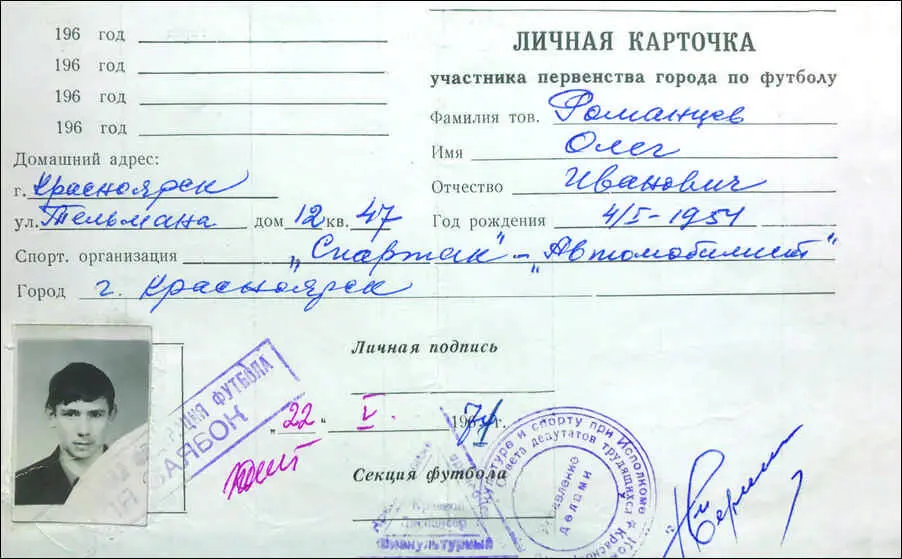 196 год
196 год
196 год
196 год
Домашний адрес:
г. Красноярск
ул. Тельмана дом 12 кв. 47
Спорт. организация „Спартак" – „Автомобилист"
Город г. Красноярск
ЛИЧНАЯ КАРТОЧКА
участника первенства города по футболу
Фамилия тов. Романцев
Имя Олег
Отчество Иванович
Год рождения 4/I-1954
Личная подпись
„22" V. 1971 г.
Секция футбола
ФУТБОЛА
Краевой
Диспансер
Физкультурный
и спорту при Исполкоме
депутатов трудящихся
делами